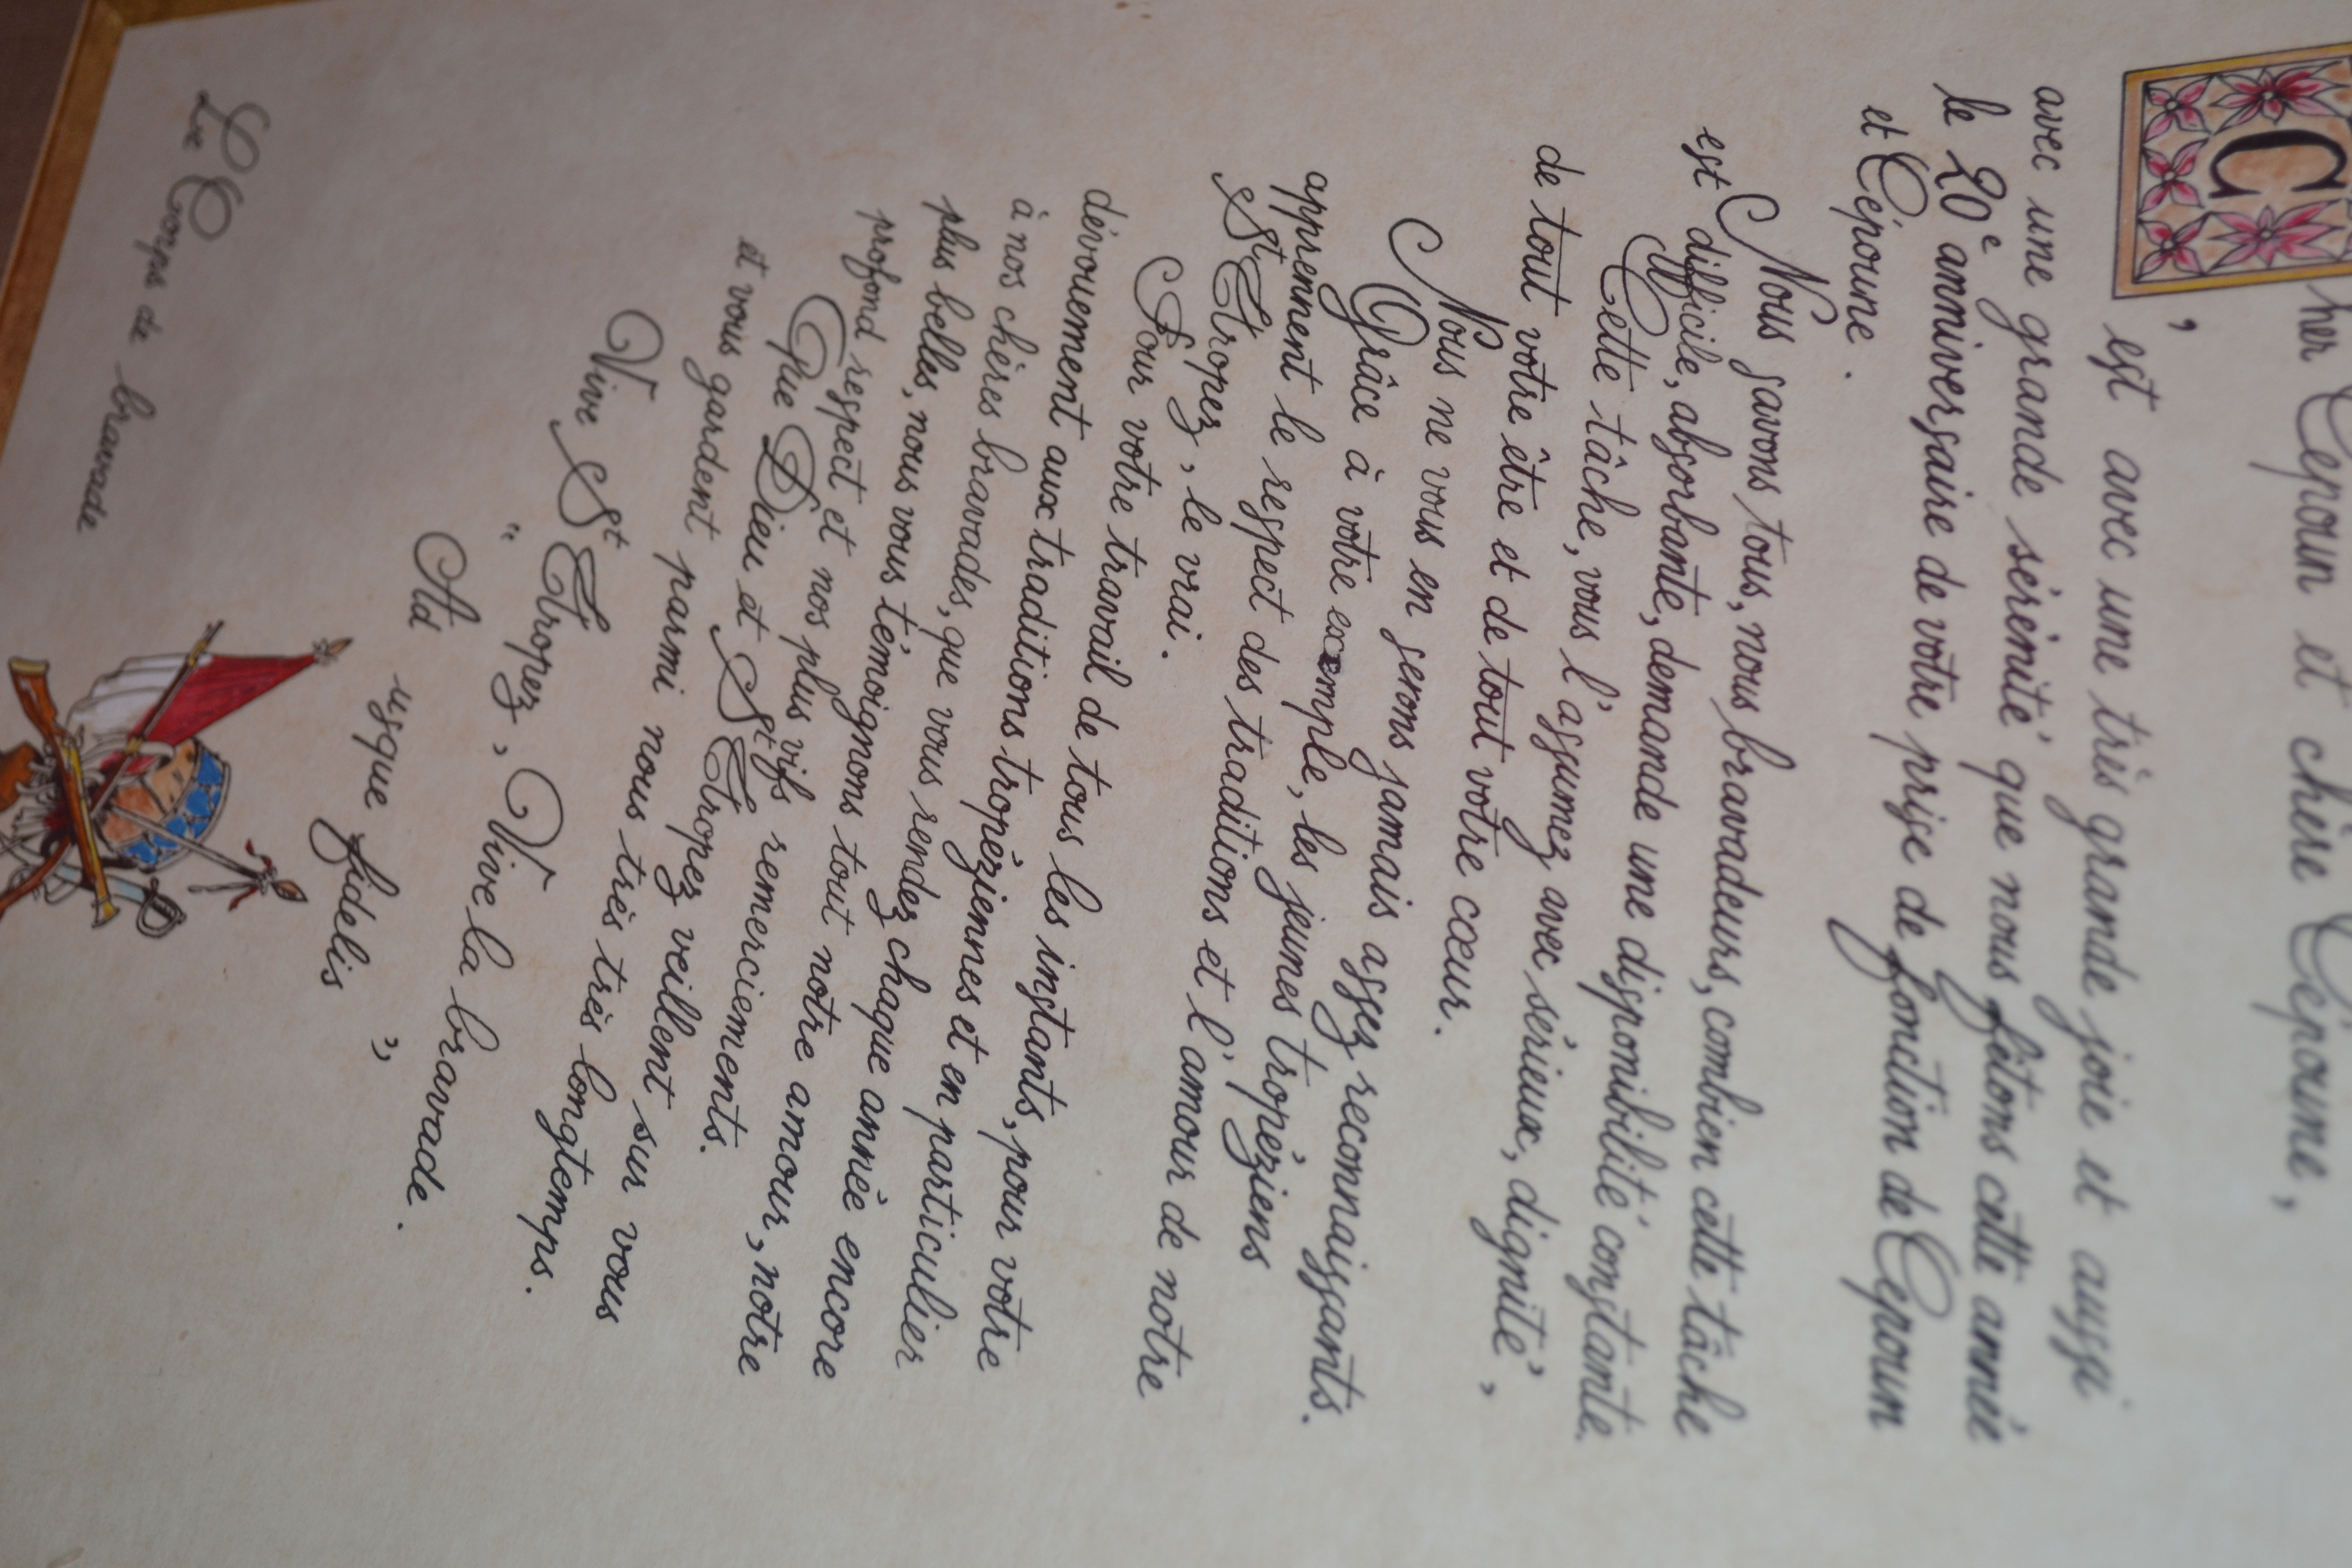 Cher Cépoun et chère Cépoune,
C'est avec une très grande joie et aussi
avec une grande sérénité que nous fêtons cette année
le 20e anniversaire de votre prise de fonction de Cépoun
et Cépoune.
Nous savons tous, nous bravadeurs, combien cette tâche
est difficile, absorbante, demande une disponibilité constante.
Cette tâche, vous l'assumez avec sérieux, dignité,
de tout votre être et de tout votre cœur.
Nous ne vous en serons jamais assez reconnaissants.
Grâce à votre exemple, les jeunes tropéziens
apprennent le respect des traditions et l'amour de notre
St Tropez, le vrai.
Pour votre travail de tous les instants, pour votre
dévouement aux traditions tropéziennes et en particulier
à nos chères bravades, que vous rendez chaque année encore
plus belles, nous vous témoignons tout notre amour, notre
profond respect et nos plus vifs remerciements.
Que Dieu et St Tropez veillent sur vous
et vous gardent parmi nous très très longtemps.
Vive St Tropez, Vive la bravade.
"Ad usque fidelis"
Le Corps de bravade